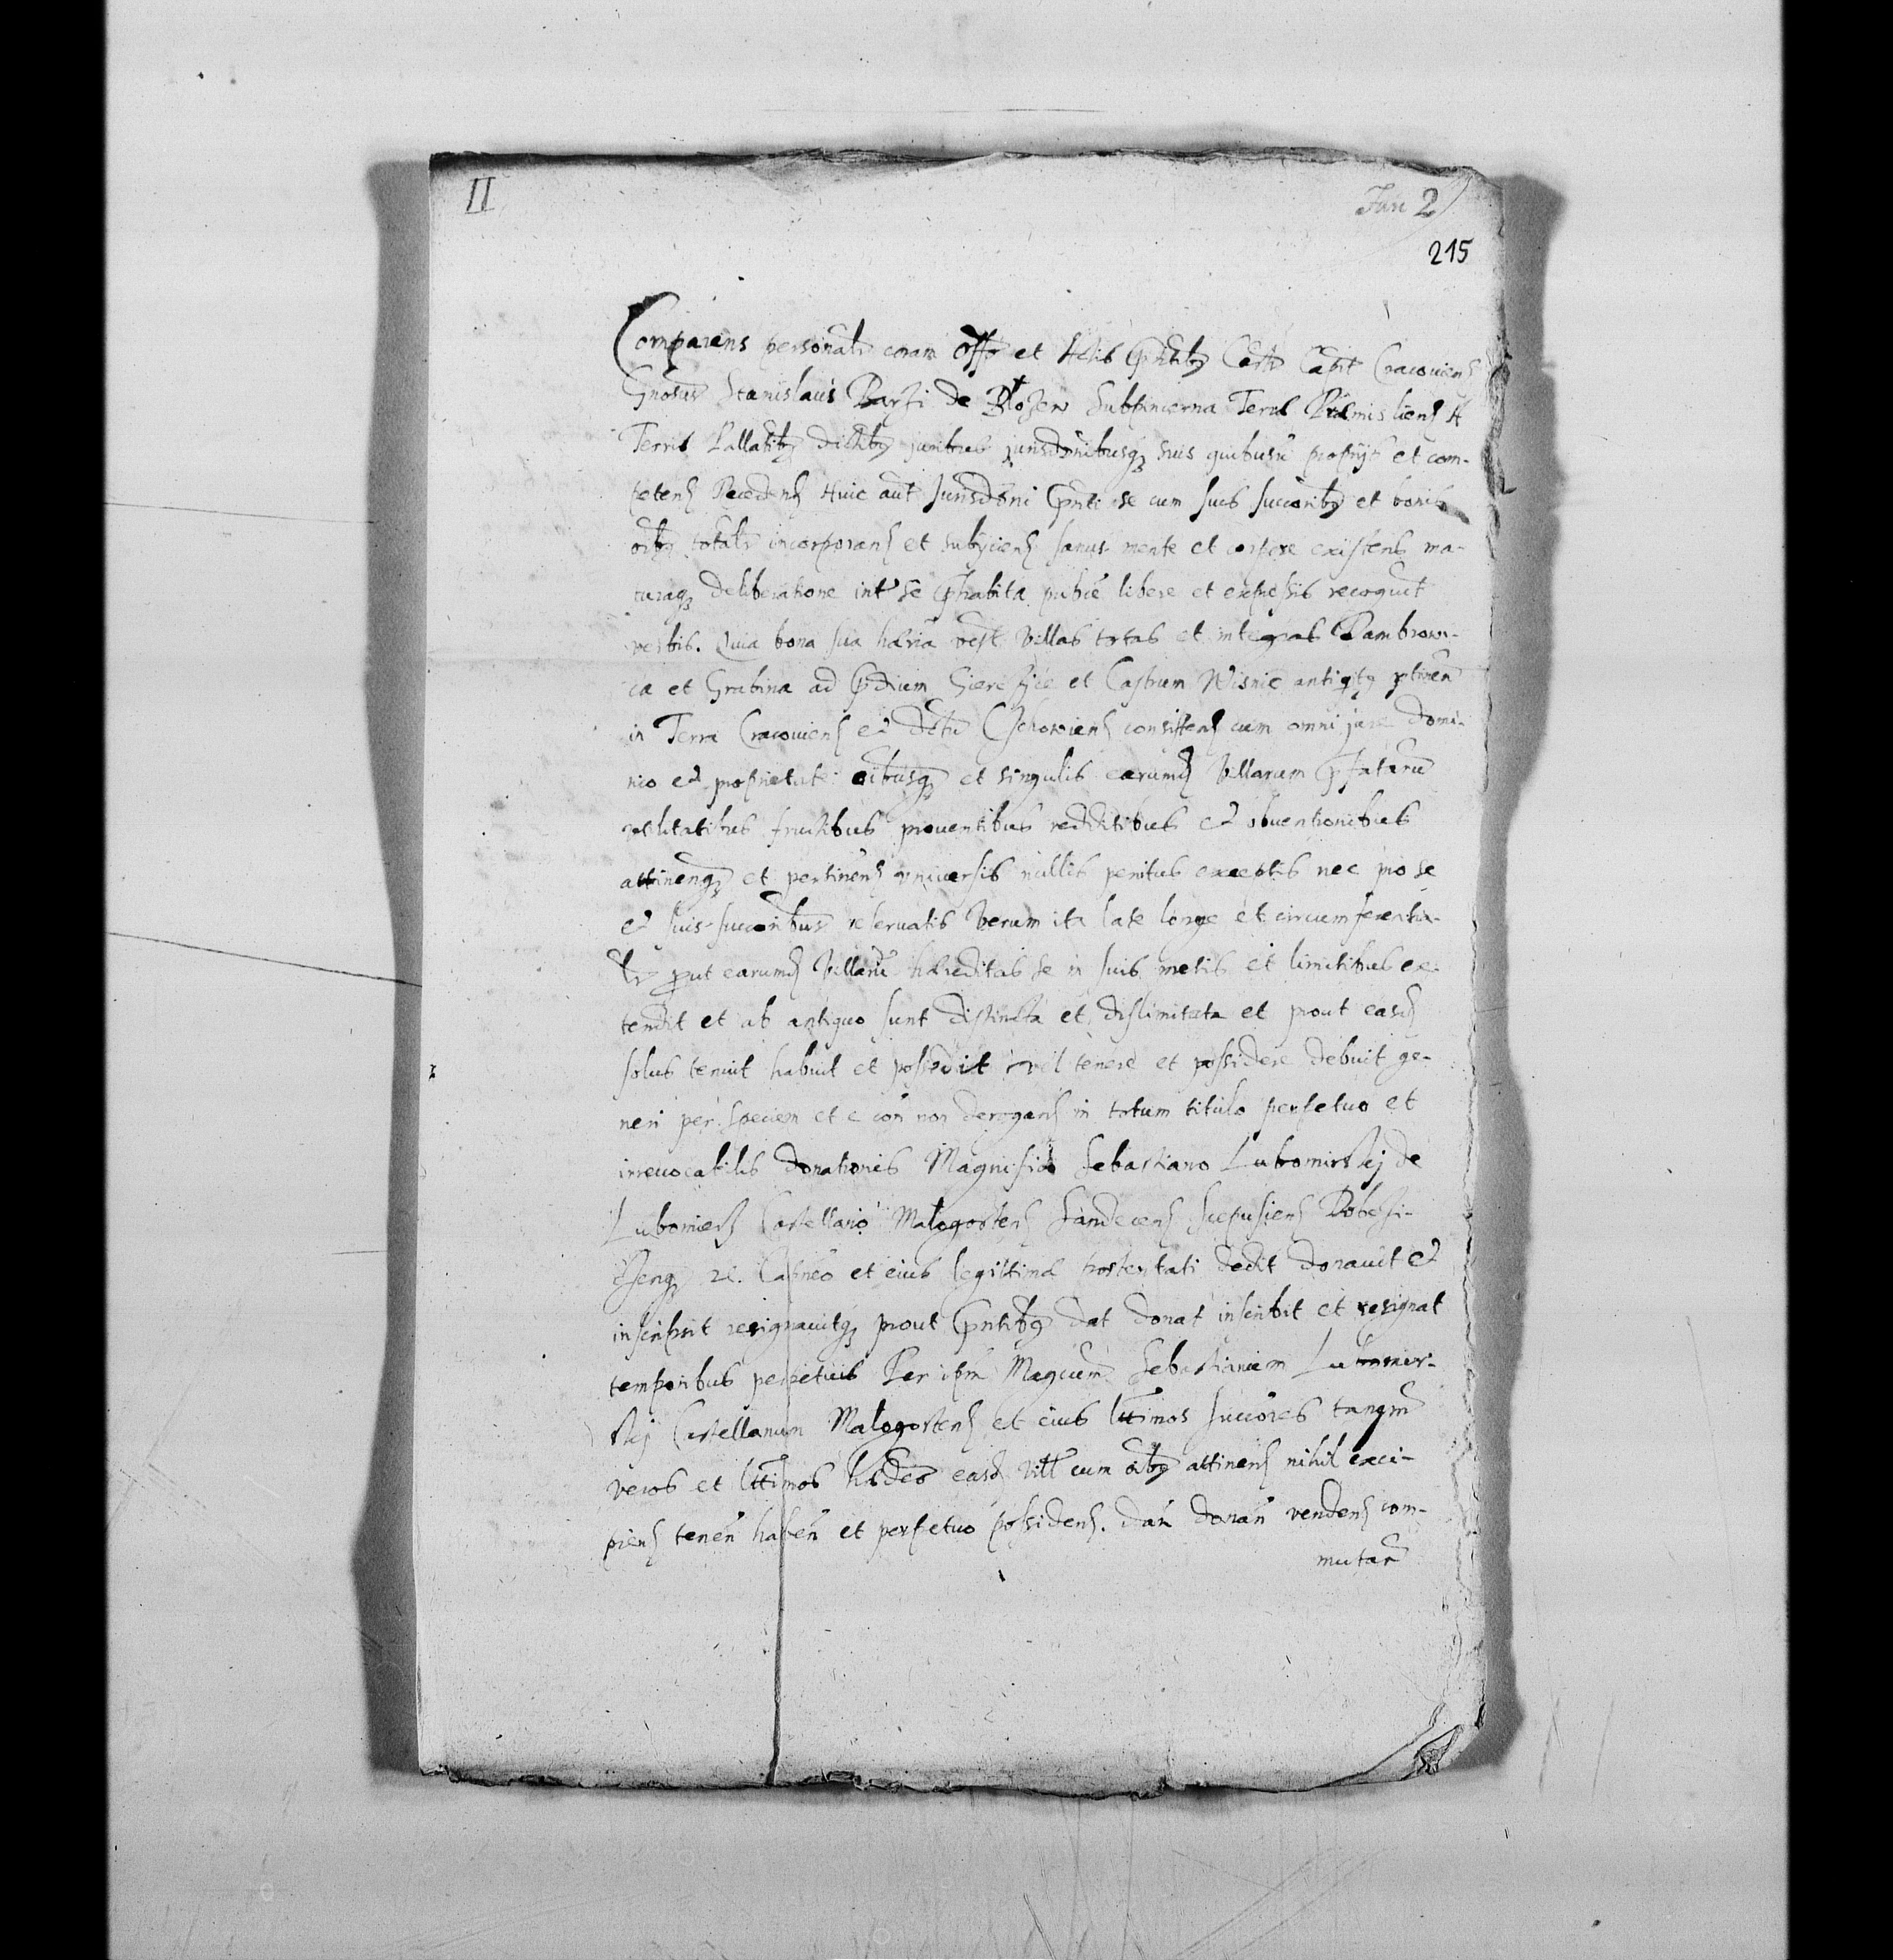 II
Juli 2
215
Comparens personalr coram Offo et Actis Pntibq Castr Capit Cracouiens
Gnosus Stanislaus Barzi de Blozew Subpincerna Terrae Praemisliens A
Terris Pallatibq dictibq juribus jurisdonibusq suis quibusuis proprijs et com-
petens Recedens Huic aut Jurisdoni Pnti se cum suis succoribq et bonis
oibq totalr incorporans et subyciens sanus mente et corpore existens ma-
turaq deliberatione intr se prhabita publce libere et expressis recognit
verbis. Quia bona sua haeria vest Villas totas et integras Dambrow-
ca et Grabina ad Pdium et Castrum Wisnic antiqtq ptinen
in Terra Cracouiens et Dctu Czchowiens consistens cum omni jure domi-
nio et proprietate oibusq et singulis earumd Villarum pfataru
vtilitatibus fructibus prouentibus redditibus et obuentionibus
attinenq et pertinens vniuersis nullis penitus exceptis nec pro se
et suis succoribus reseruatis Verum ita late longe et circumferentia-
lr prout earumd Villaru haereditas se in suis metis et limitibus ex-
tendit et ab antiquo sunt distincta et dislimitata et prout easd
solus tenuit habuit et possedit vel tenere et possidere debuit ge-
neri per speciem et e con non derogans in totum titulo perpetuo et
irreuocabilis donationis Magnifico Sebastiano Lubomirskij de
Lubomierz Castellano Malogostens Sandecens Scepusiens Dobczi-
censq zc. Capneo et eius legittimae posteritati dedit donauit et
inscripsit resignauitq prout Pntibq dat donat inscribit et resignat
temporibus perpetuis Per ipm Magcum Sebastianum Lubomir-
skij Castellanum Malogostens et eius lttimos succores tanqm
veros et lttimos haedes easd Vill cum oibq attinens nihil exci-
piens tenen haben et perpetuo possidens. dan donan vendens com-
mutan